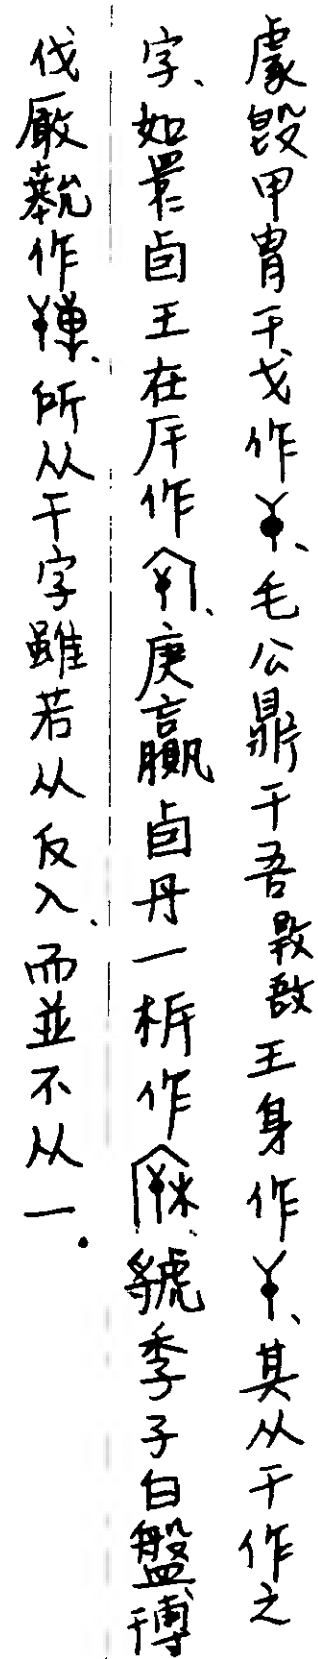 䖒毁甲冑干戈作、毛公鼎干吾王身作、其从干作之
字、如睘卣王在厈作、庚嬴卣丹一㭒作、虢季子白盤博
伐厰作、所从干字雖若从反入、而並不从一.